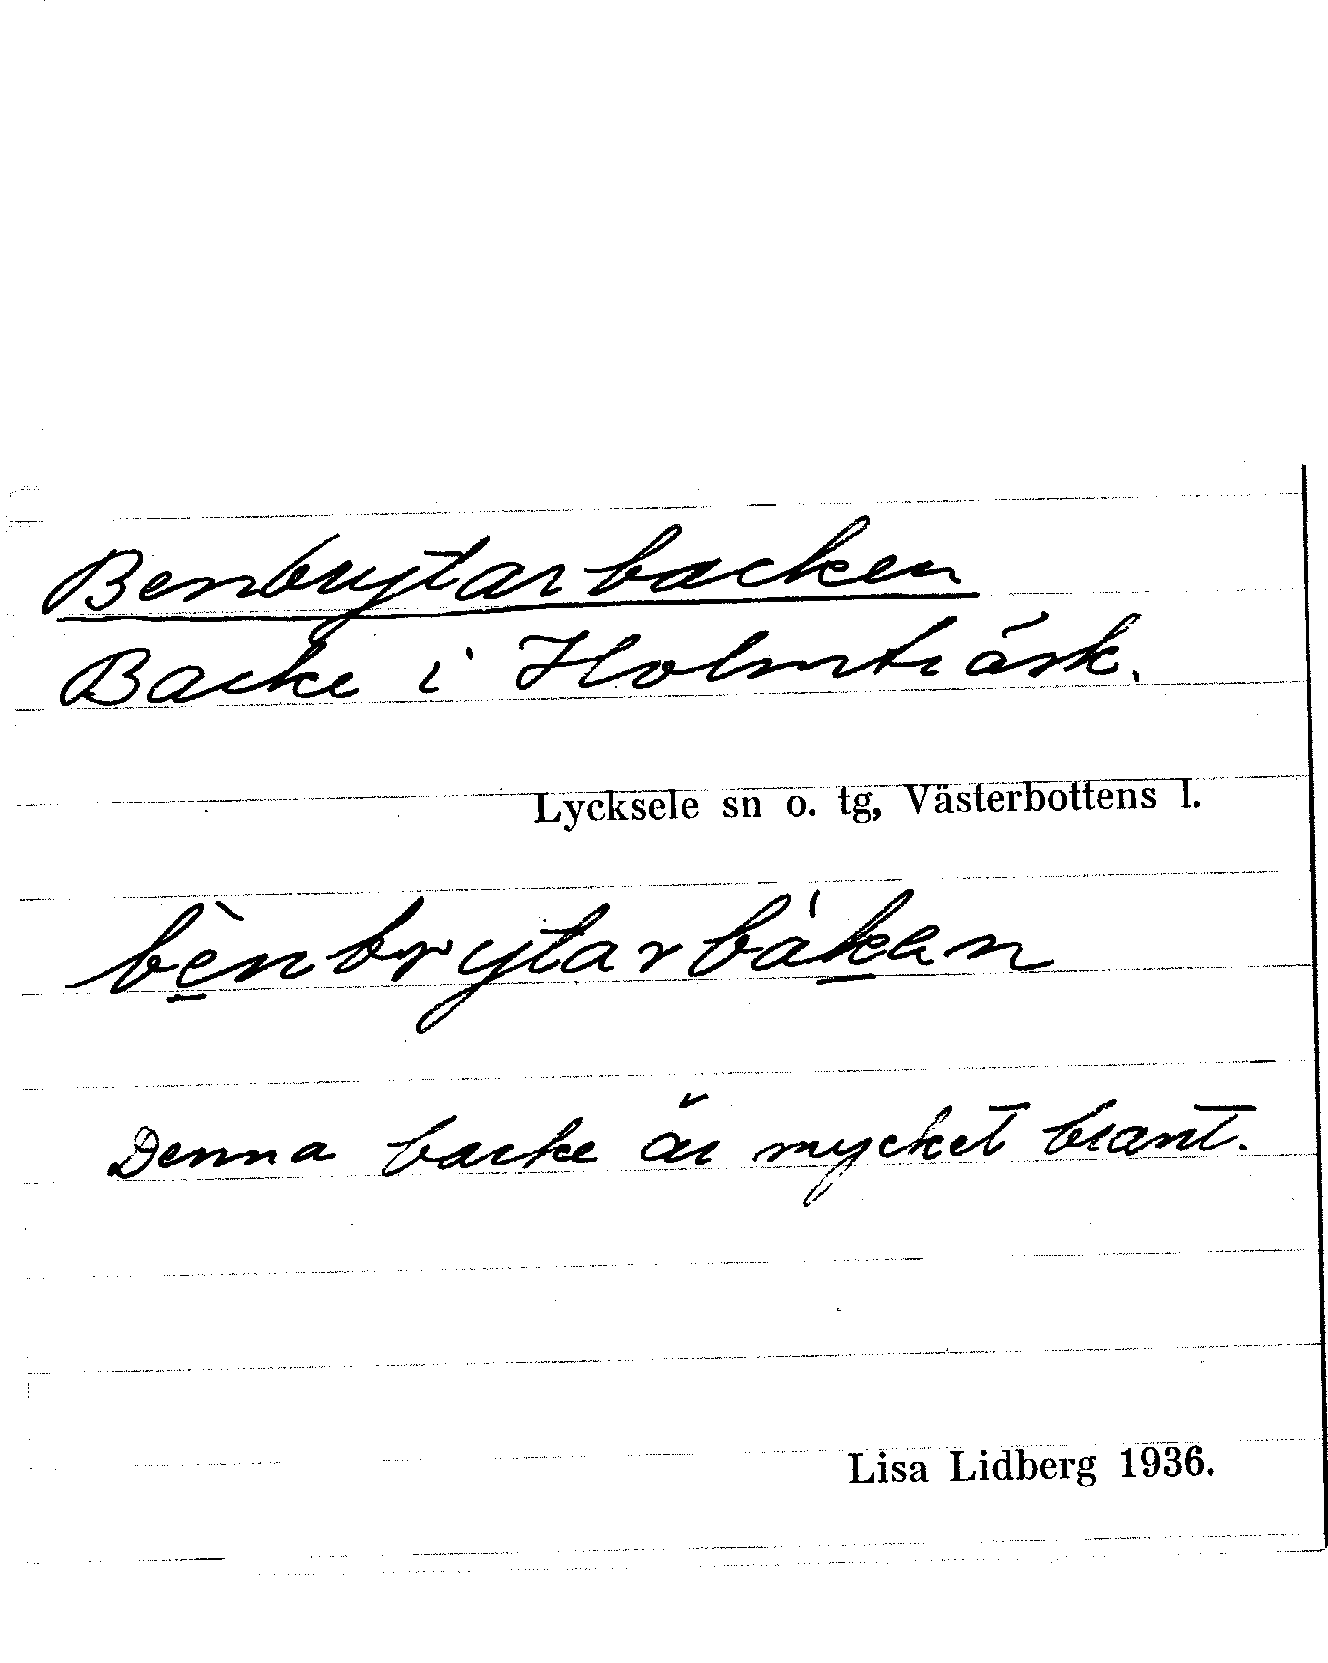 Benbrytarbacken
Backe i Holmträsk.
Lycksele sn o. tg, Västerbottens l.
bènbrytarbákan
Denna backe är mycket brant.
Lisa Lidberg 1936.